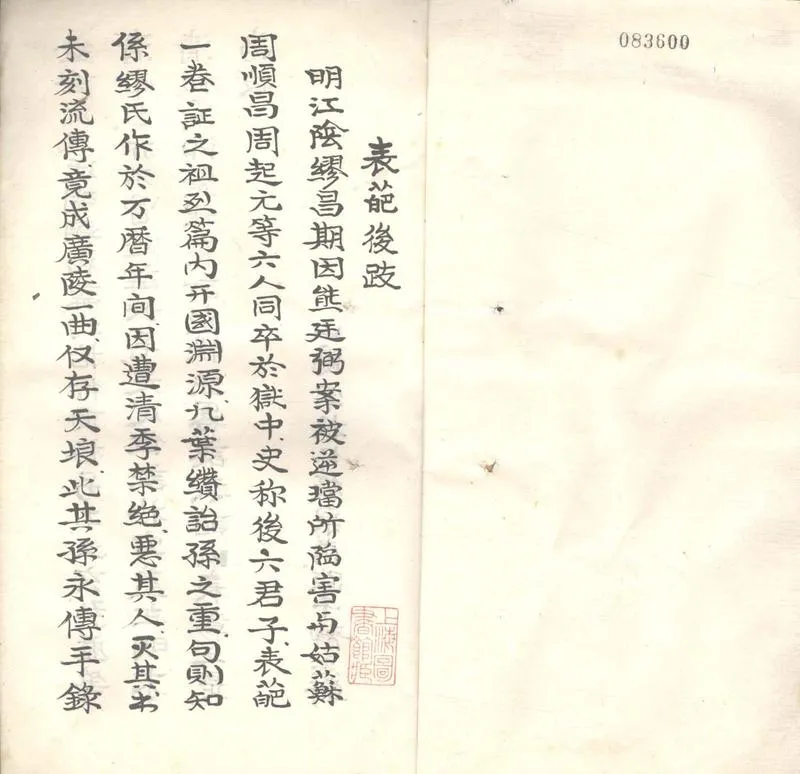 083600
表葩後跋
明江陰繆昌期因熊廷弼案被逆璫所陥害与姑蘇
周順昌周起元等六人同卒於獄中、史称後六君子、表葩
一卷証之祖烈篇内开國淵源、九葉纘詒孫之重、句則知
係繆氏作於万曆年间因遭清季禁絶、悪其人、灭其书
未刻流傳、竟成廣陵一曲、仅存天埌、此其孫永傳手錄
上海圖書館藏